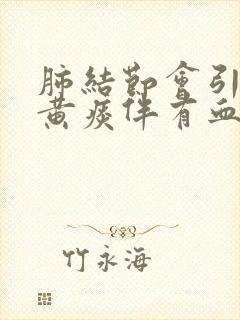 肺結節會引
黃痰伴有血
竹永海